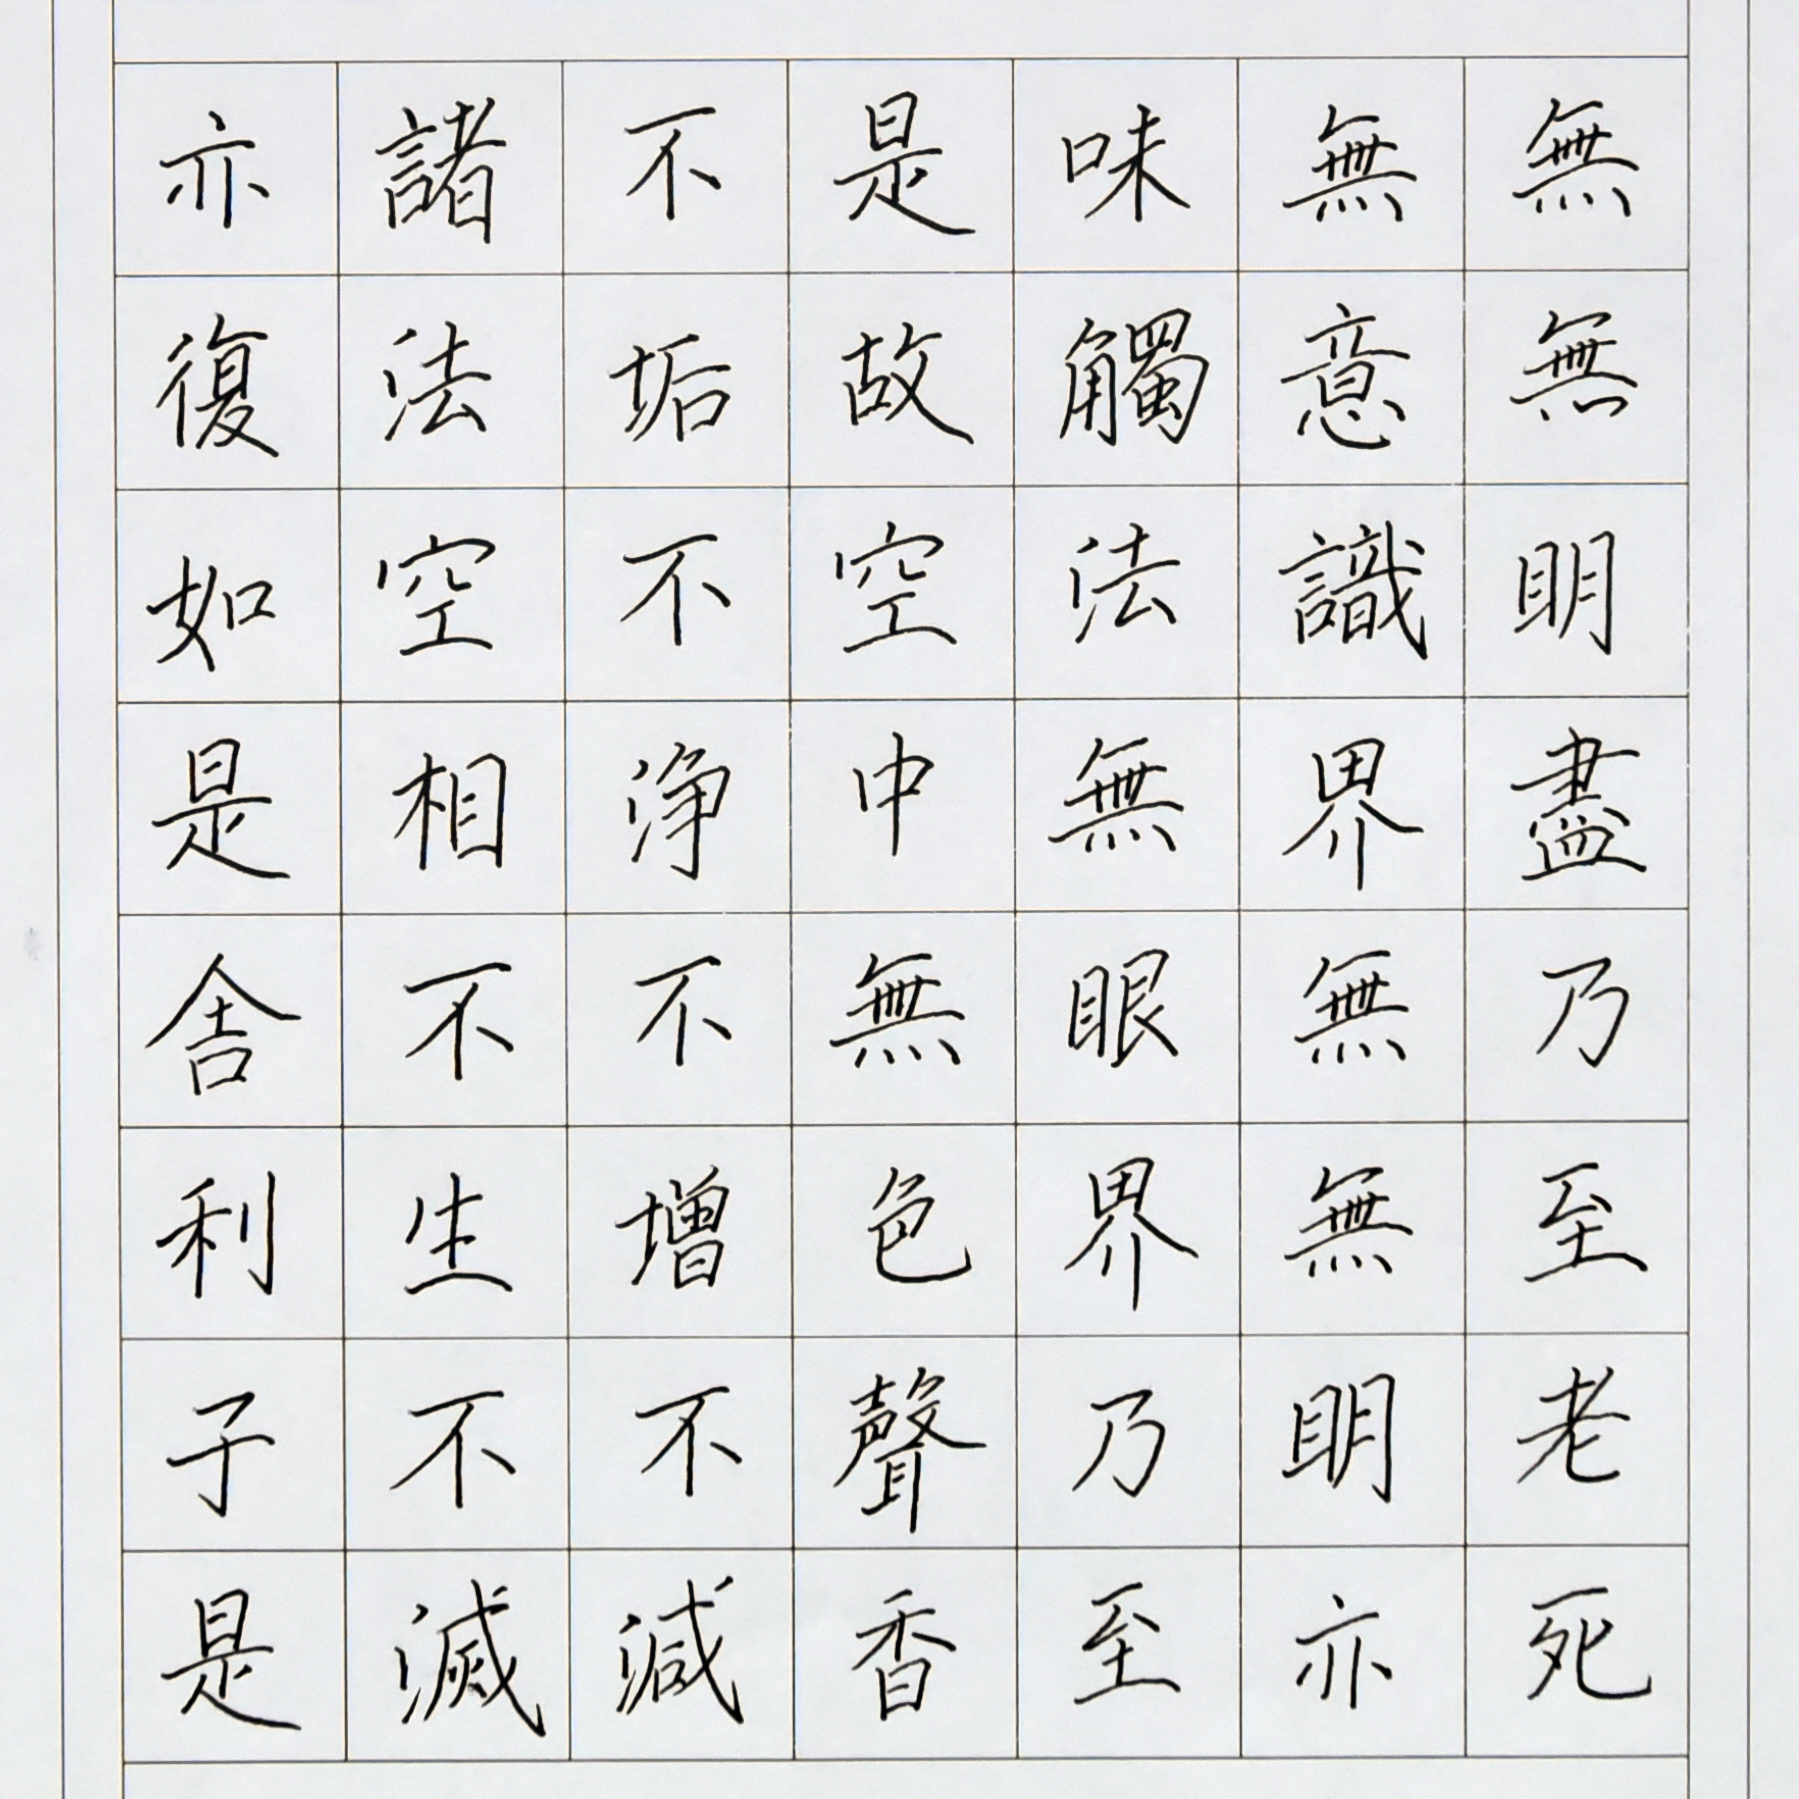 亦復如是舍利子是
諸法空相不生不滅
不垢不浄不增不減
是故空中無色聲香
味觸法無眼界乃至
無意識界無無明亦
無無明盡乃至老死